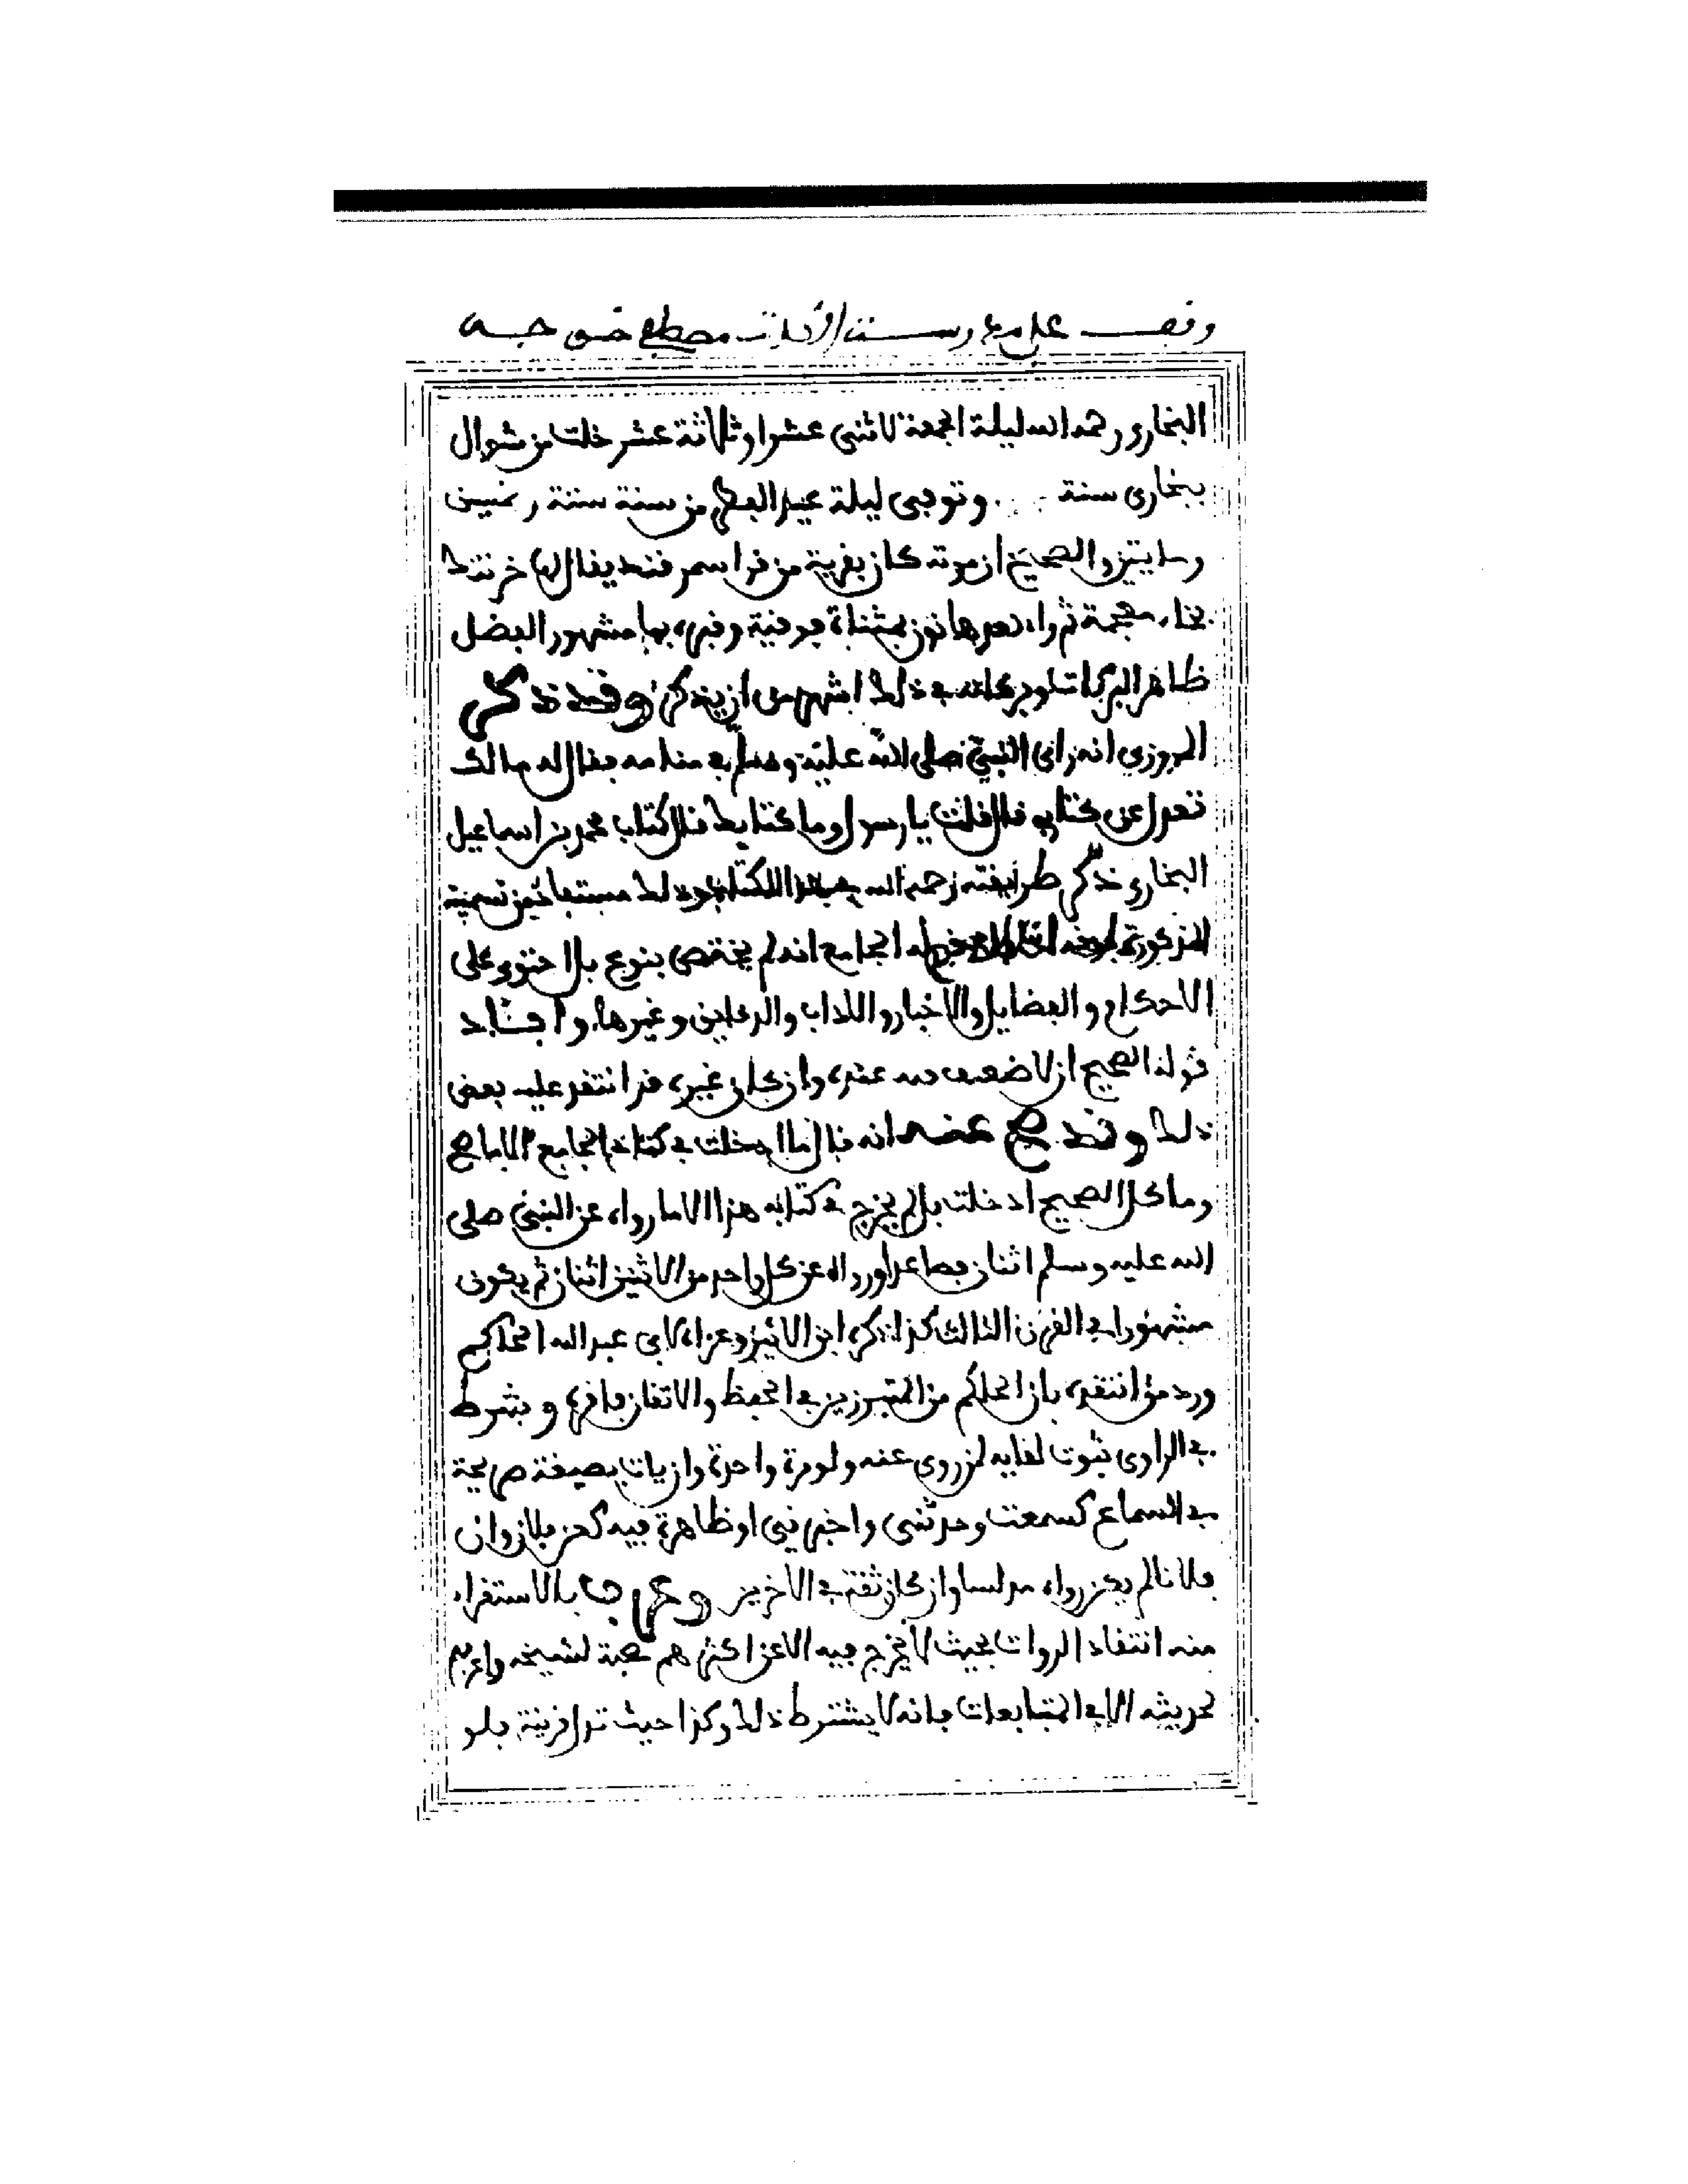 وقف على مدرسة مصطفى خوجه
البخاري رحمه الله ليلة الجمعة لاثنى عشر او ثلاثة عشر خلت من شوال
ببخارى سنة وتوفى ليلة عيد الفطر من سنة ستة وخمسين
وما يتين والصحيح ان موته كان بقرية من قرا سمرقند يقال لها خرتنك
بخاء معجمة ثم راء بعدها نون بمثناة فوقية وقبره بها مشهور الفضل
ظاهر البركات ذلك اشهر من ان يذكر وقد ذكر
المروزي انه رأى النبي صلى الله عليه وسلم في منامه فقال له مالك
تعدل عن كتابي قال قلت يا رسول وما كتابك قال كتاب محمد بن اسماعيل
البخاري ذكر طريقته رحمه الله تسمية
المذكورة الجامع انه لم يختص بنوع بل احتوى على
الاحكام و الفضايل والاخبار والاداب والرقايق وغيرها وافاد
قوله الصحيح ان لا ضعيف فيه عنده وان كان غيره قد انتقد عليه بعض
ذلك وقد صح عنه انه قال ما ادخلت في كتاب الجامع الا ما صح
وما كل الصحيح ادخلت بل لم يخرج في كتابه هذا الا ما رواه عن النبي صلى
الله عليه وسلم اثنان فصاعدا ورواه عن كل واحد من الاثنين اثنان ثم يكون
مشهورا في القرن الثالث كذا ذكره ابن الاثير وعزاه لابي عبد الله الحاكم
ورد من انتقده بان الحاكم من المتبرزين في الحفظ والاتقان وشرط
في الراوى ثبوت لقايه لمن روى عنه ولو مرة واحدة وان يات بصيغة صريحة
في السماع كسمعت وحدثني واخبرني او ظاهرة فيه كعن فلان وان
فلانا لم يكن رواه مدلسا وان كان ثقة في الاخرين وعرف بالاستقراء
منه انتقاد الروات بحيث لا يخرج فيه الا عن اكثرهم صحبة لشيخه واعرفهم
لحديثه الا في المتابعات فانه لا يشترط ذلك وكذا حيث قرينة فلو